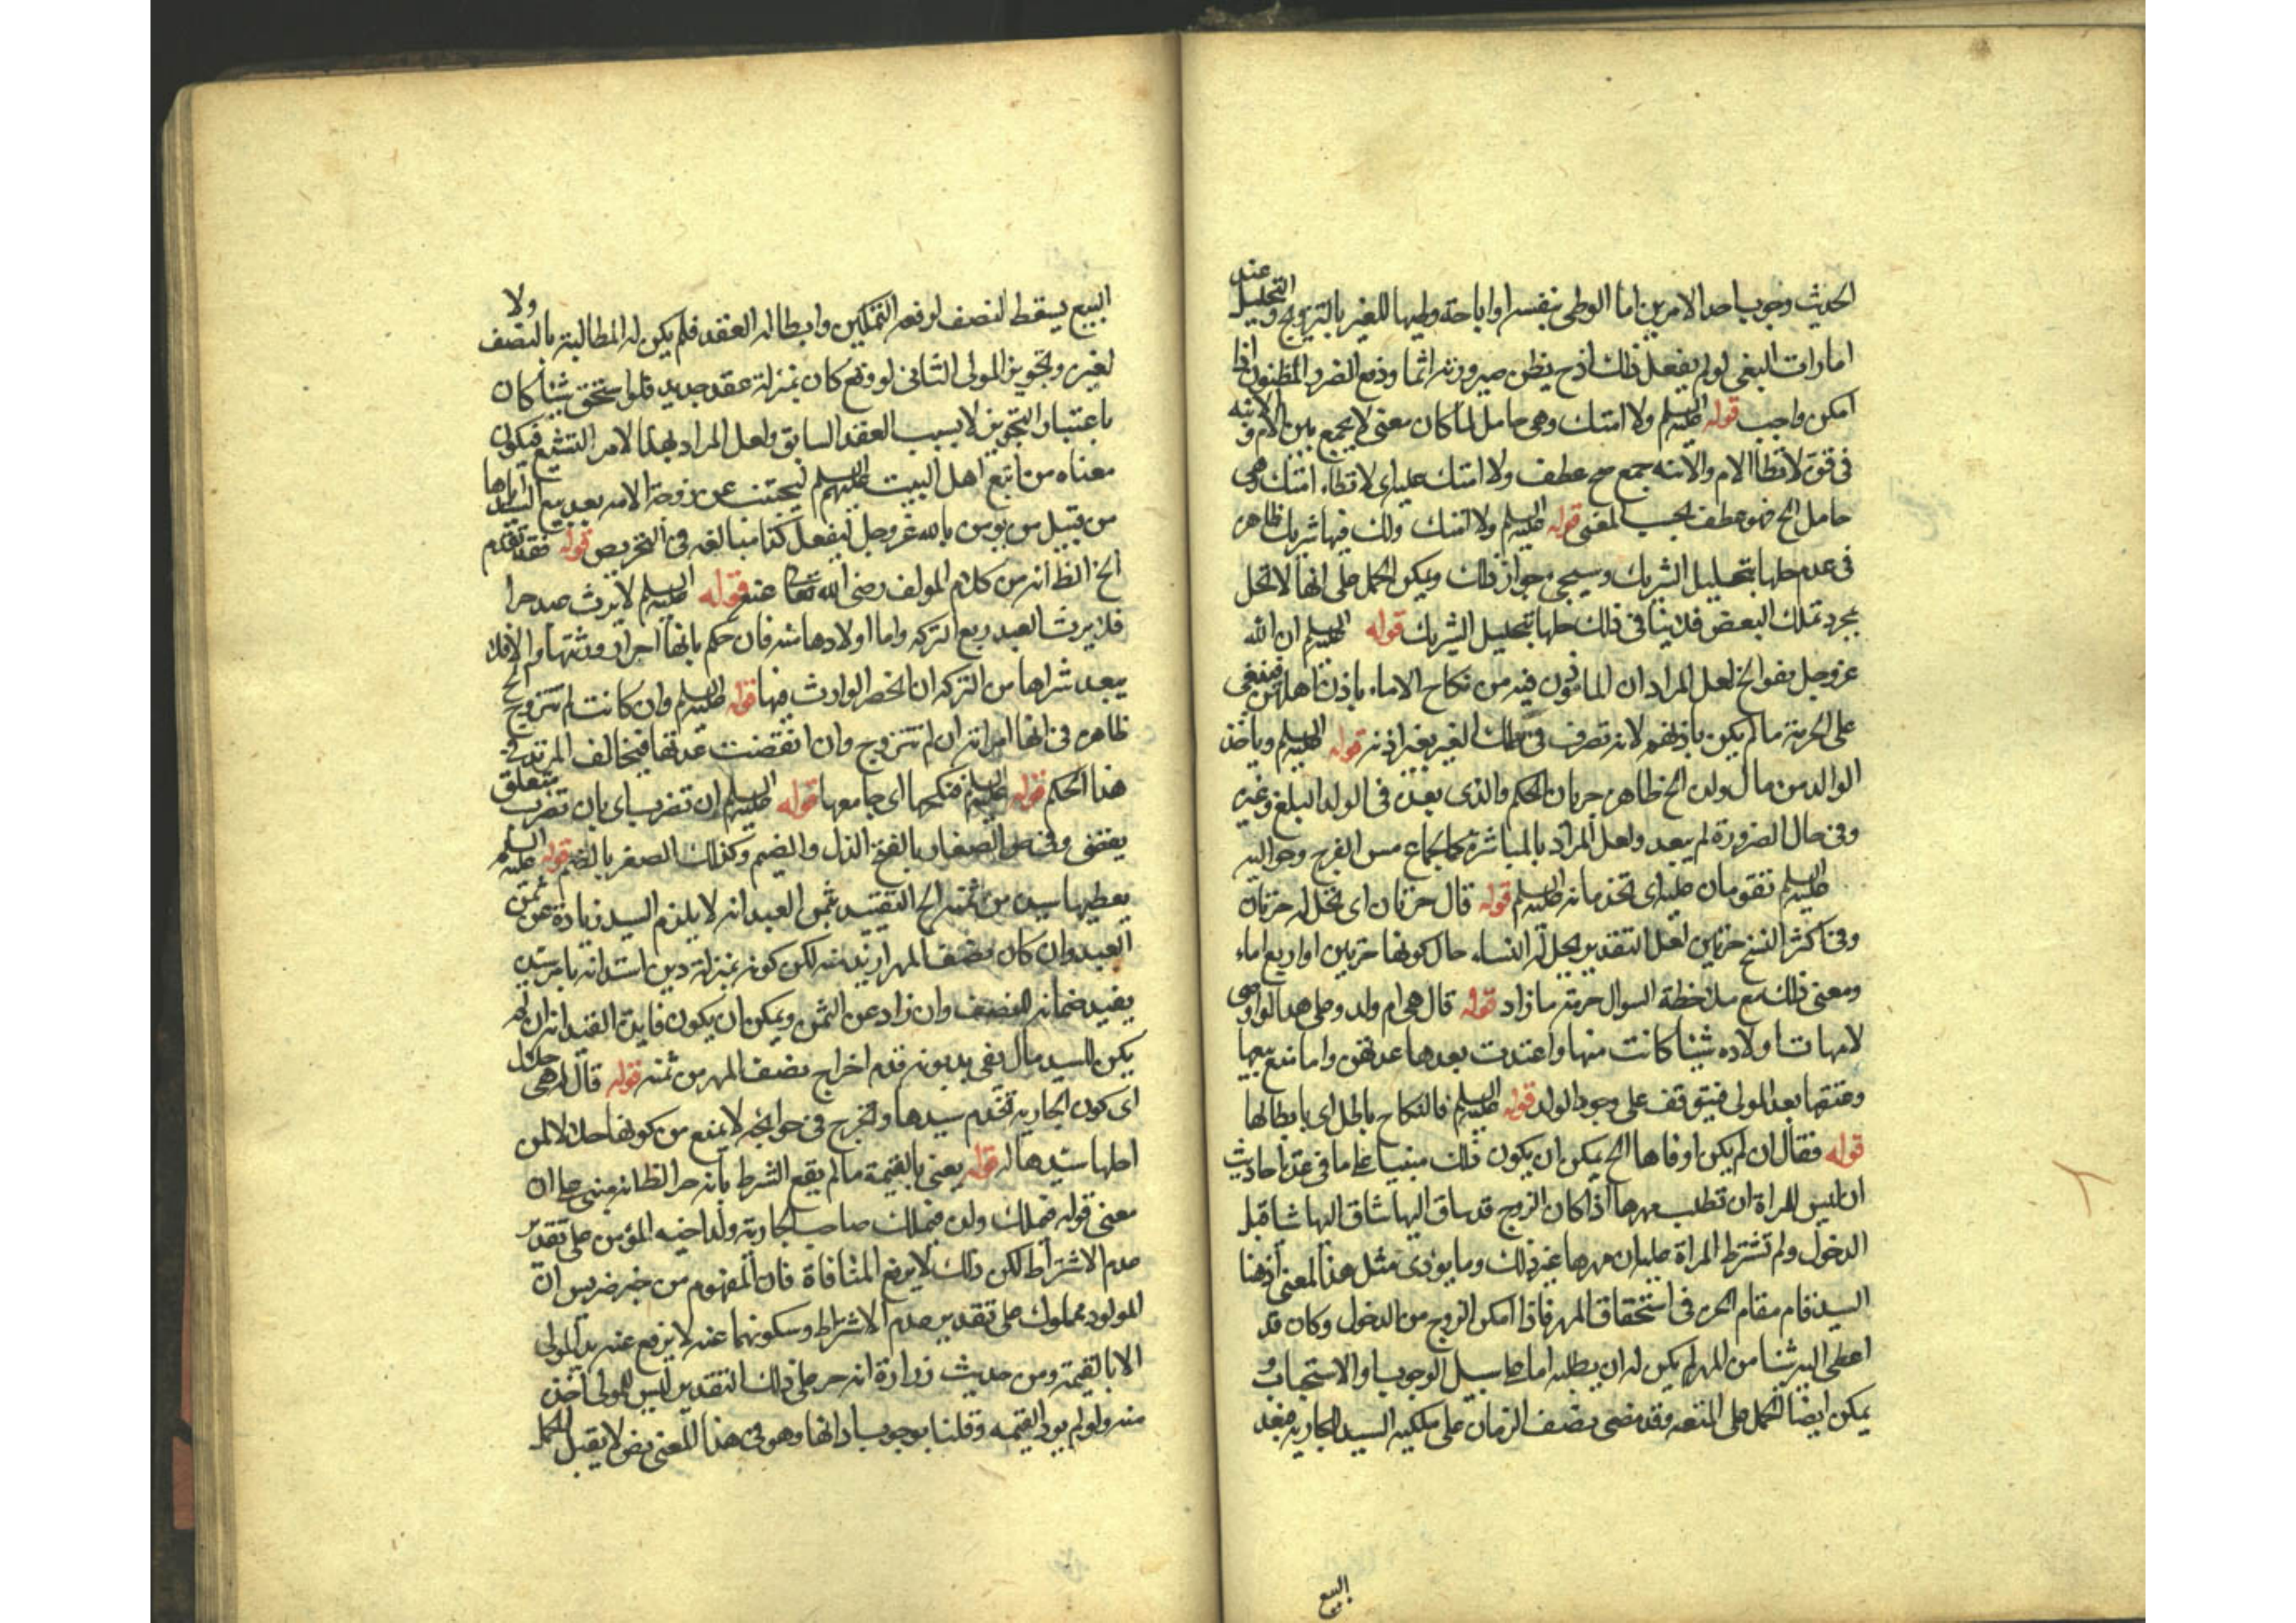 الحديث وجوب احد الامرين اما الوطى بنفسه او اباحة وطيها للغير بالتزويج و التحليل عند
امارات البغى لو لم يفعل ذلك اذ ح يظن صيرورته اثما ودفع الضرر المظنون اذا
امكن واجب قوله عليه السلم ولا امتك وهى حامل لما كان معنى لا يجمع بين الام و الابنه
فى قوة لا تطأ الام والابنه جمع صح عطف ولا امتك عليه اى لا تطاء امتك وهى
حامل الخ فهو عطف بحسب المعنى قوله عليه السلم ولا امتك ولك فيها شريك ظاهره
فى عدم حلها بتحليل الشريك وسيجى جواز ذلك ويمكن الحمل على انها لا تحل
بمجرد تملك البعض فلا ينافى ذلك حلها بتحليل الشريك قوله عليه السلم ان الله
عز وجل يقو الخ لعل المراد ان الماذون فيه من نكاح الاماء باذن اهلهن فيبقى
على الحرمة ما لم يكن باذنهم لانه تصرف فى ملك الغير بغير اذنه قوله عليه السلم وياخذ
الوالد من مال ولده الخ ظاهره جريان الحكم والذى بعده فى الولد البالغ وغيره
وفى حال الضرورة لم يبعد ولعل المراد بالمباشرة كالجماع مس الفرج وحواليه
عليه السلم تقومان عليه اى تخدمانه عليه السلم قوله قال حرتان اى تحل له حرتان
وفى اكثر النسخ حرتين لعل التقدير يحل له النساء حال كونها حرتين او اربع اماء
ومعنى ذلك مع ملاحظة السوال حرمة ما زاد قوله قال هى ام ولد وعلى هذا لو اوصى
لامهات اولاده شيئا كانت منها واعتدت بعدها عدتهن واما منع بيعها
وعتقها بعد المولى فيتوقف على وجود الولد قوله عليه السلم فالنكاح باطل اى بابطالها
قوله فقال ان لم يكن اوفاها الخ يمكن ان يكون ذلك مبنيا على ما فى عدة احاديث
ان ليس للمراة ان تطلب مهرها اذا كان الزوج قد ساق اليها شيئا قبل
الدخول ولم تشترط المراة عليه ان مهرها غير ذلك وما يودى مثل هذا المعنى اذ هنا
السيد قام مقام الحره فى استحقاق المهر فاذا امكن الزوج من الدخول وكان قد
اعطى اليه شيئا من المهر لم يكن له ان يطلبه اما على سبيل الوجوب او الاستحباب و
يمكن ايضا الحمل على المتعه وقد مضى نصف الزمان على ملكيه السيد للجاريه فبعد
البيع
البيع يسقط النصف لرفعه التمكين وابطاله العقد فلم يكن له المطالبة بالنصف ولا
لغيره وتجويز المولى الثانى لو وقع كان بمنزلة عقد جديد فلو استحق شيئا كان
باعتبار التجويز لا بسبب العقد السابق ولعل المراد بهذا الامر التشيع فيكون
معناه من تابع اهل البيت عليهم السلم ليجتنب عن زوجة الامه بعد بيع السيد اياها
من قبيل من يومن بالله عز وجل ليفعل كذا مبالغه فى التحريص قوله فقد تقدم
الخ الظ انه من كلام المولف رضى الله تعالى عنه قوله عليه السلم لا يرث عبد حرا
فلا يرث العبد ربع التركه واما اولادها منه فان حكم بانها احرار ورثتها والا فلا
يبعد شراها من التركه ان انحصر الوارث فيها قوله عليه السلم وان كانت لم تتزوج الخ
ظاهره فى انها امراته ان لم تتزوج وان انقضت عدتها فيخالف المرتد فى
هذا الحكم قوله عليه السلم فنكحها اى جامعها قوله عليه السلم ان تضرب اى بان تضرب يتعلق
يقضى وفى ص الصغار بالفتح الذل والضيم وكذلك الصغر بالضم قوله عليه السلم
يعطيها سيده من ثمنه الخ التقييد بثمن العبد انه لا يلزم السيد زيادة عن ثمن
العبد وان كان نصف المهر ازيد منه لكن كونه بمنزلة دين استدانه بامر سيده
يفيد ضمانه للنصف وان زاد عن الثمن ويمكن ان يكون فايدة القيد انه ان لم
يكن للسيد مال يفى بديونه قدم اخراج نصف المهر من ثمنه قوله قال له هى حلال
اى كون الجاريه تخدم سيدها وتخرج فى حوائجه لا يمنع من كونها حلالا لمن
احلها سيدها له قوله يعنى بالقيمة ما لم يقع الشرط بانه حر الظ انه مبنى على ان
معنى قوله فيملك ولده فيملك صاحب الجارية ولد اخيه المؤمن على تقدير
عدم الاشتراط لكن ذلك لا يرفع المنافاة فان المفهوم من خبر ضريس ان
المولود مملوك على تقدير عدم الاشتراط وسكوتهما عنه لا يرفع عنه يد المولى
الا بالقيمة ومن حديث زرارة انه حر على ذلك التقدير ليس للمولى اخذ
منه ولو لم يود القيمه وقلنا بوجوب ادائها وهو فى هذا المعنى نص لا يقبل الحمل